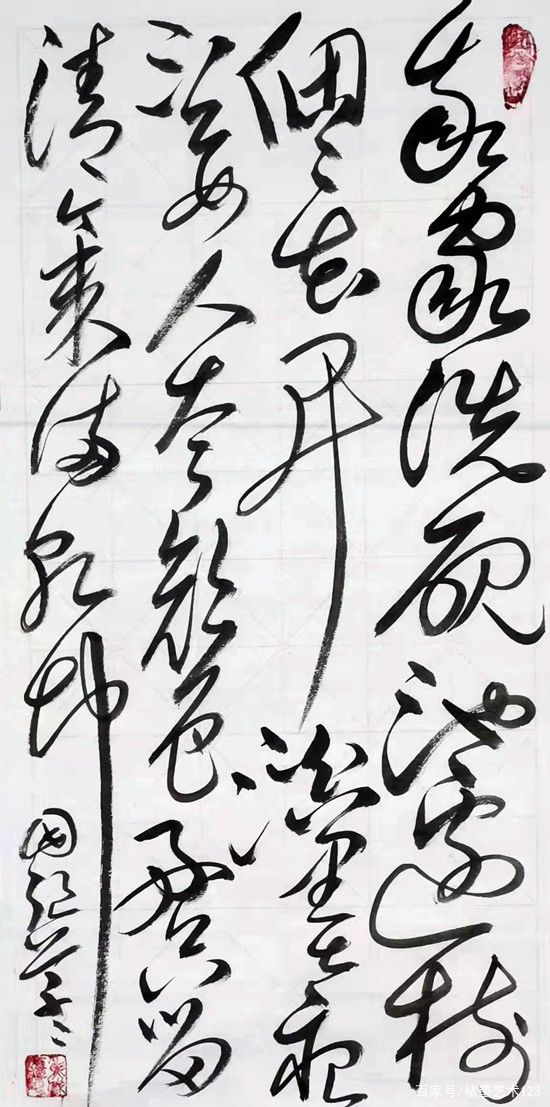 我家洗砚池边树
個々花开淡墨痕
不要人夸颜色好只留
清气满乾坤
百家号/楮墨艺术123